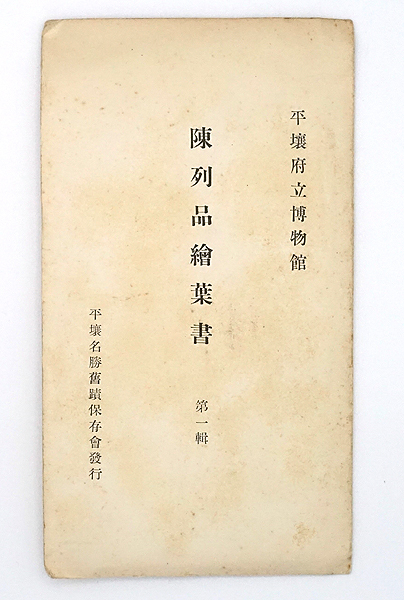 平壤府立博物館
陳列品繪葉書 第一輯
平壤名勝舊蹟保存會發行